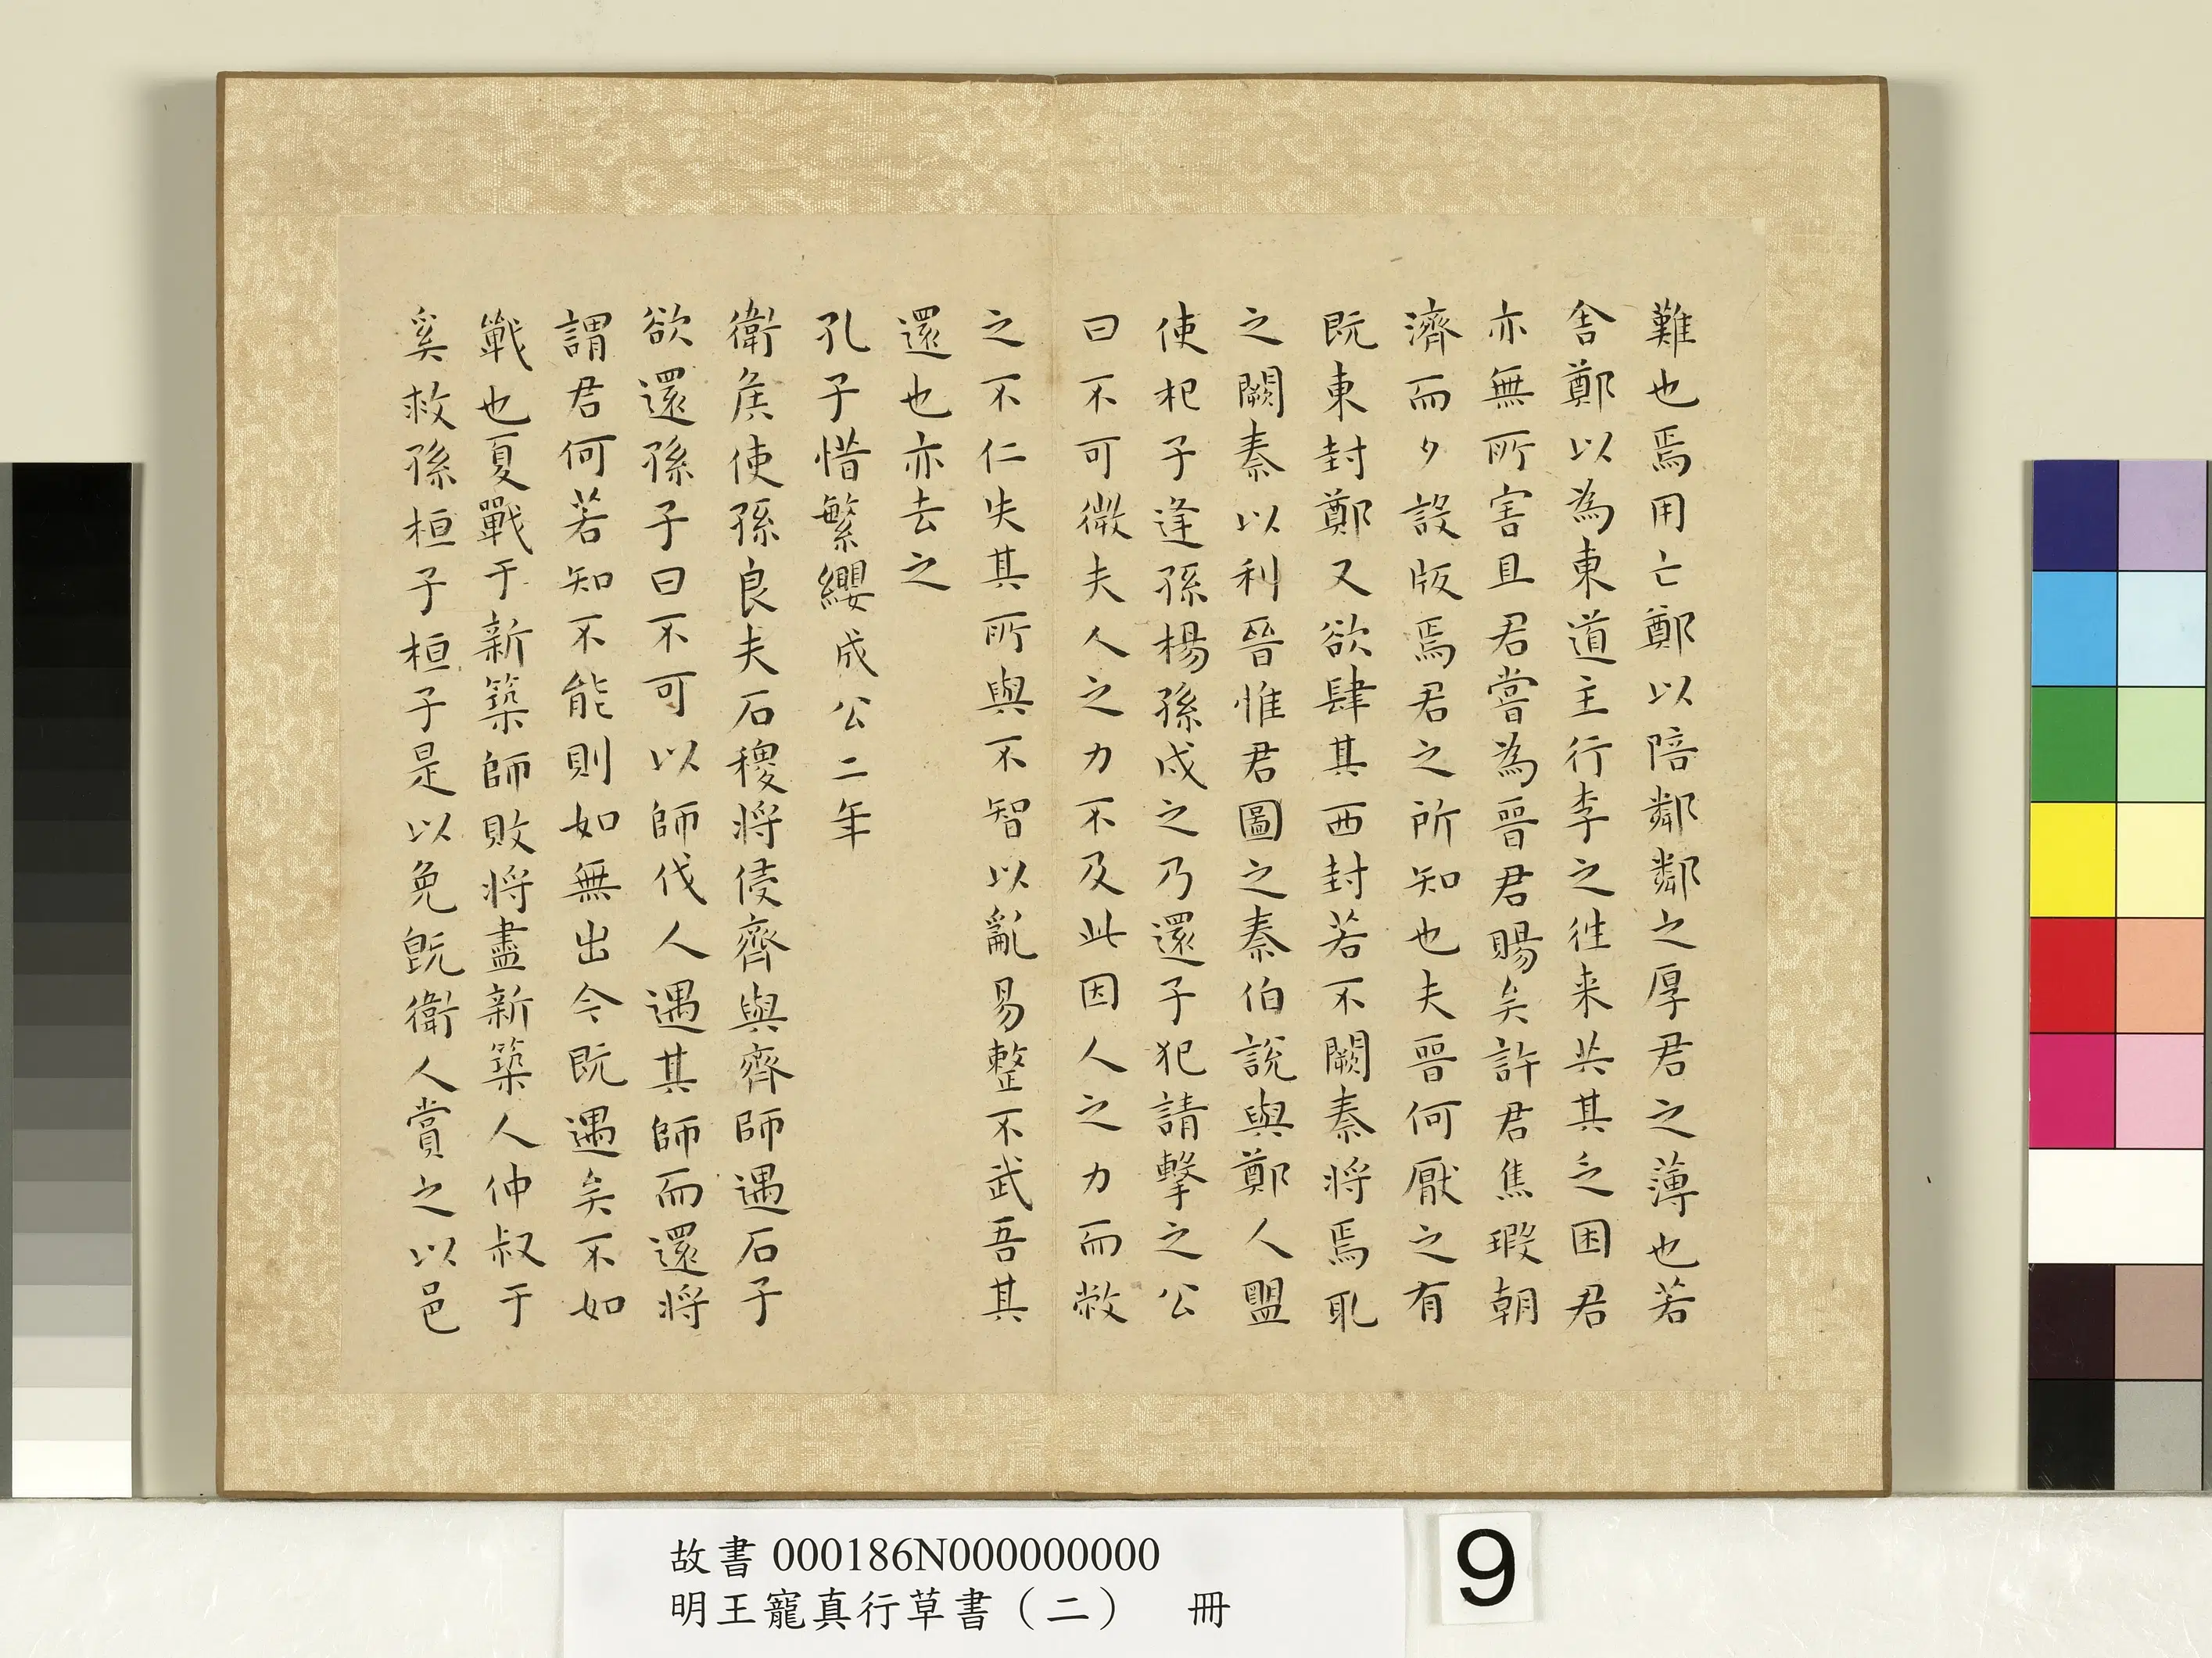 難也焉用亡鄭以陪鄰鄰之厚君之薄也若
舍鄭以為東道主行李之往来共其乏困君
亦無所害且君嘗為晉君賜矣許君焦瑕朝
濟而夕設版焉君之所知也夫晉何厭之有
既東封鄭又欲肆其西封若不闕秦將焉取
之闕秦以利晉惟君圖之秦伯說與鄭人盟
使杞子逢孫楊孫戍之乃還子犯請擊之公
曰不可微夫人之力不及此因人之力而敝
之不仁失其所與不智以亂易整不武吾其
還也亦去之
孔子惜繁纓成公二年
衛侯使孫良夫石稷將侵齊與齊師遇石子
欲還孫子曰不可以師伐人遇其師而還將
謂君何若知不能則如無出今既遇矣不如
戰也夏戰于新築師敗將盡新築人仲叔于
奚救孫桓子桓子是以免既衛人賞之以邑
故書000186N000000000
明王寵真行草書（二） 冊
9